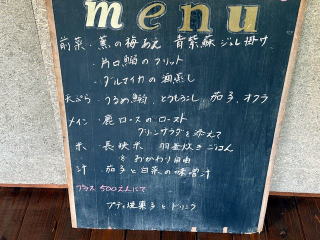 menu
前菜・蕪の梅あえ 青紫蘇ジュレ掛け
・片口鰯のフリット
・ダルマイカの酒蒸し
天ぷら・うるめ鰯、とうもろこし、茄子、オクラ
メイン・鹿ロースのロースト
グリーンサラダを添えて
米・長狭米 羽釜炊きごはん
おかわり自由
汁・茄子と白菜の味噌汁
プラス500えんにて
プティ焼菓子とドリンク